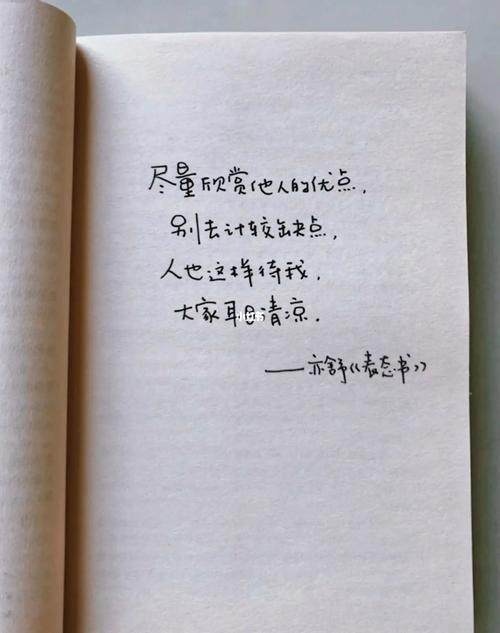 尽量欣赏他人的优点,
别去计较缺点,
人也这样待我,
大家耳目清凉.
——亦舒《表态书》
小红书